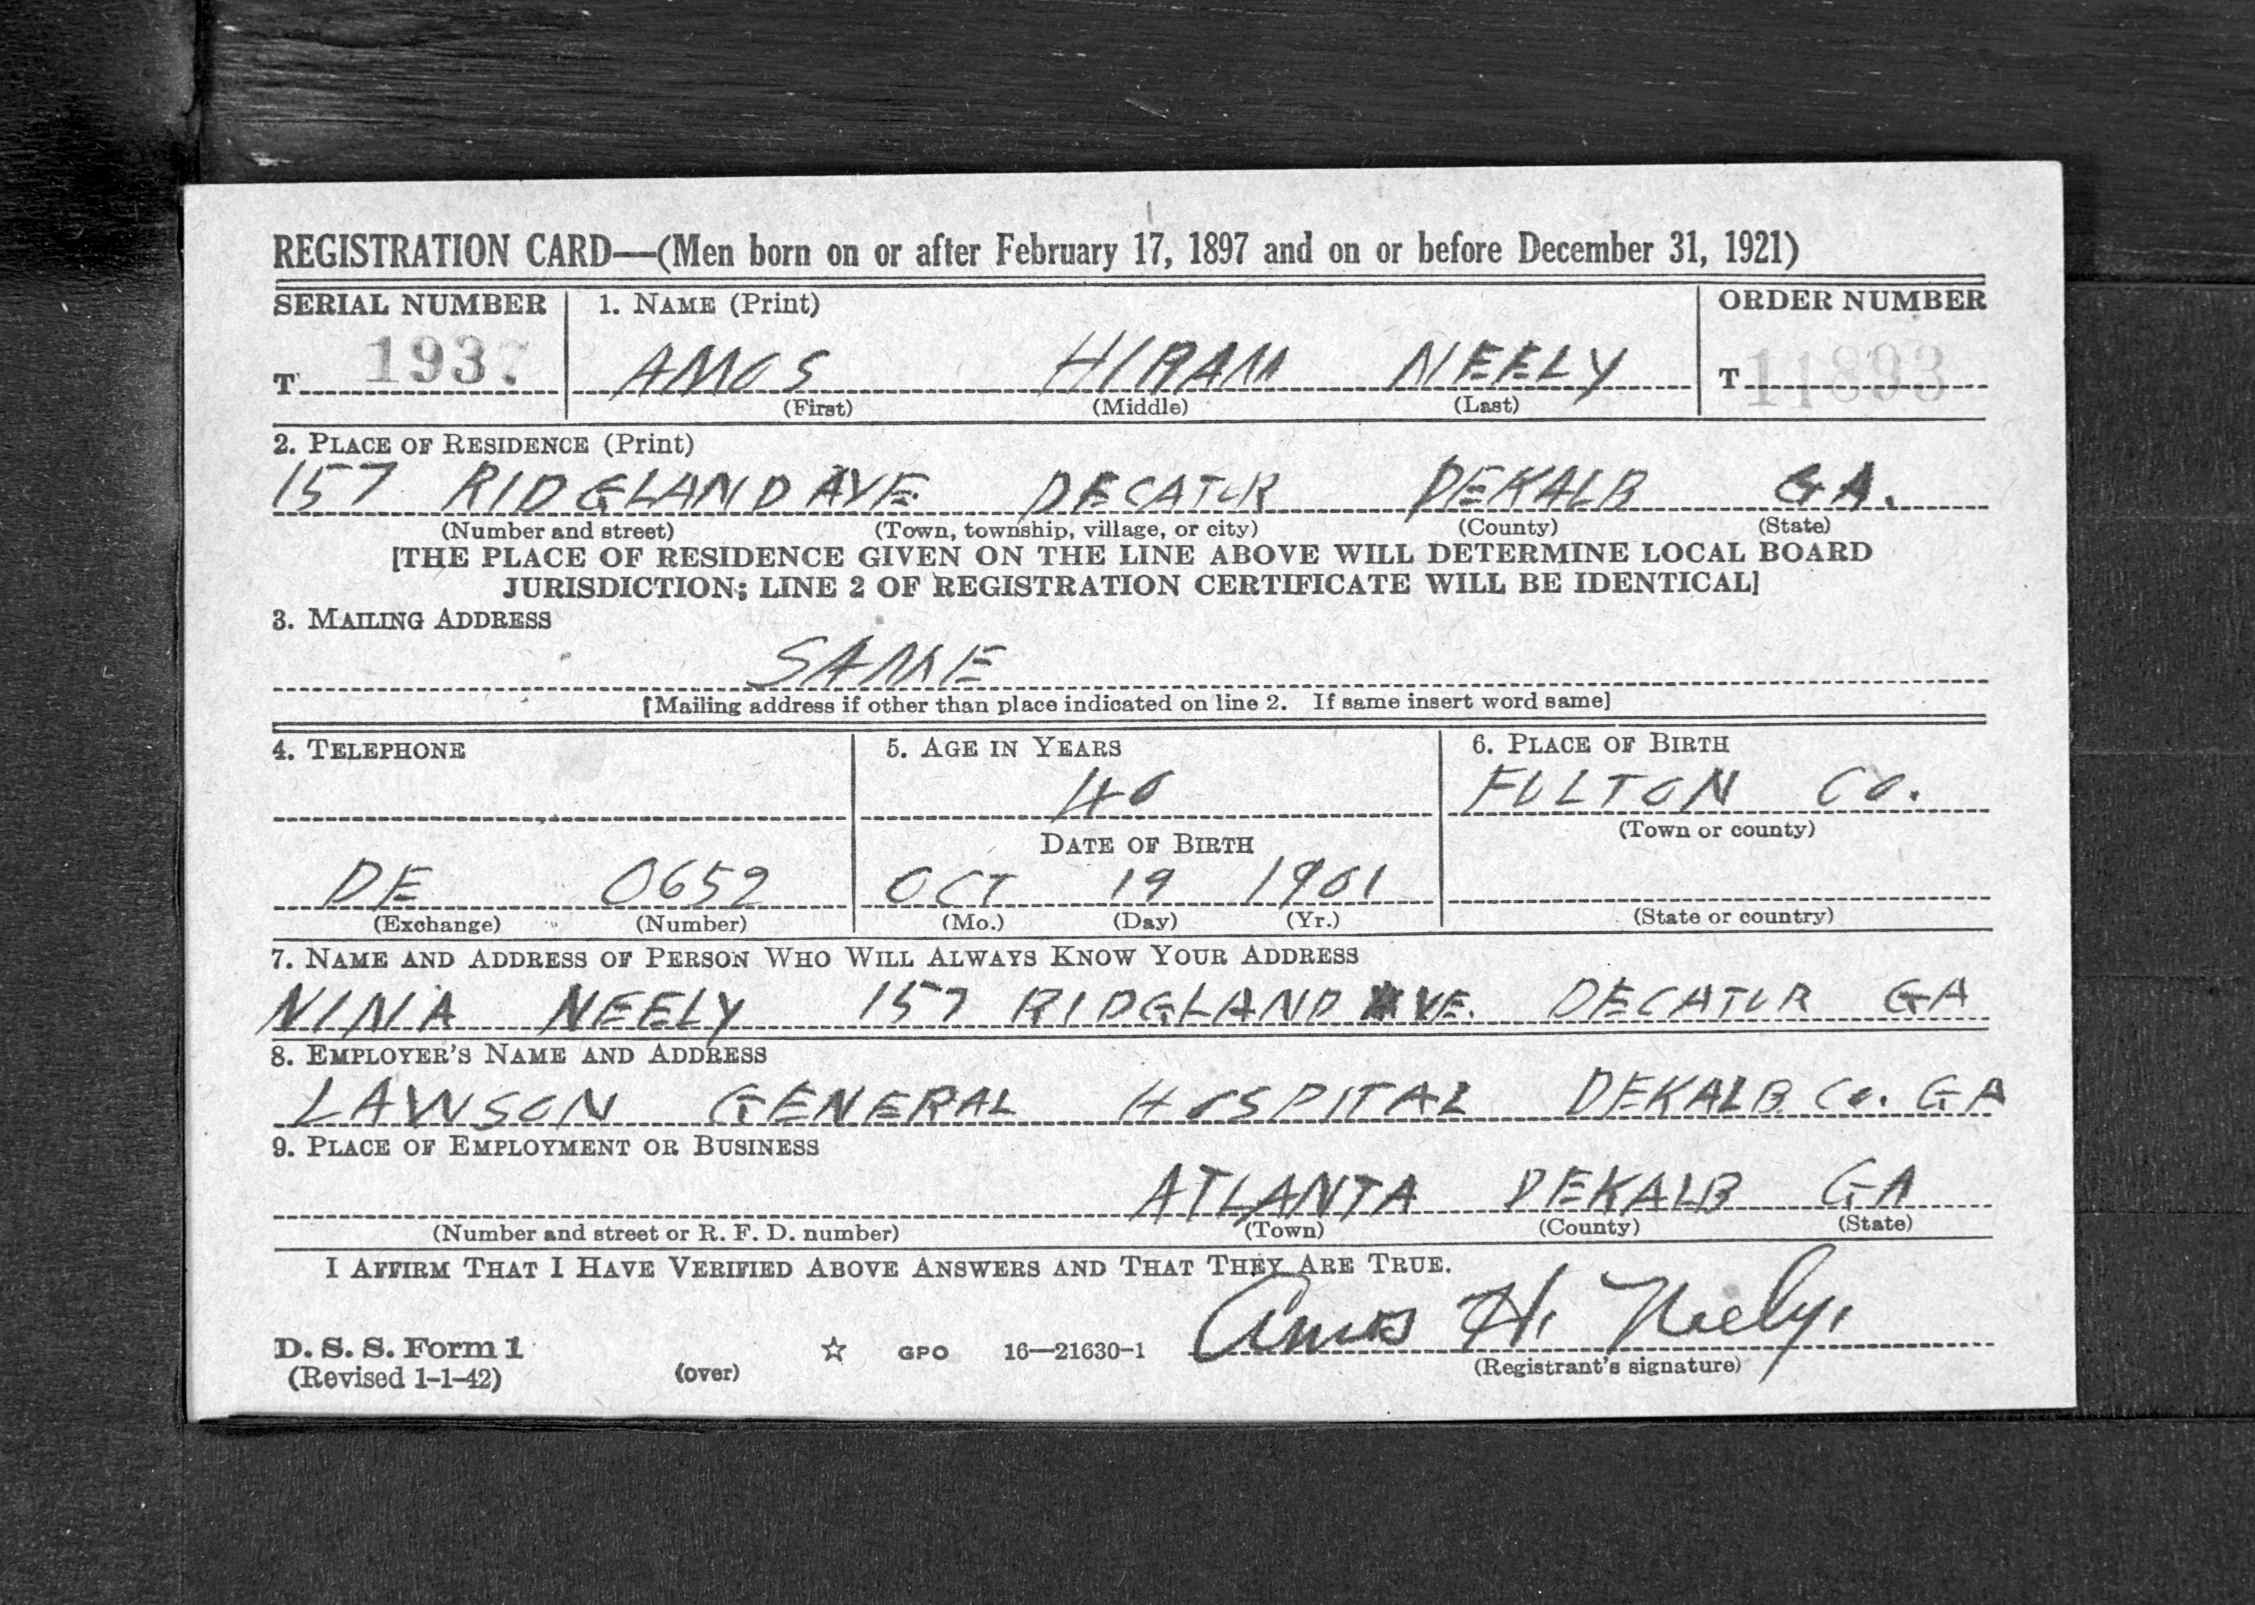 REGISTRATION CARD—(Men born on or after February 17, 1897 and on or before December 31, 1921)
SERIAL NUMBER 1. NAME (Print) ORDER NUMBER
T 1937 AMOS HIRAM NEELY T 11893
(First) (Middle) (Last)
2. PLACE OF RESIDENCE (Print)
157 RIDGLAND AVE DECATUR DEKALB GA.
(Number and street) (Town, township, village, or city) (County) (State)
[THE PLACE OF RESIDENCE GIVEN ON THE LINE ABOVE WILL DETERMINE LOCAL BOARD
JURISDICTION; LINE 2 OF REGISTRATION CERTIFICATE WILL BE IDENTICAL]
3. MAILING ADDRESS
SAME
[Mailing address if other than place indicated on line 2. If same insert word same]
4. TELEPHONE 5. AGE IN YEARS 6. PLACE OF BIRTH
40 FULTON CO.
DATE OF BIRTH (Town or county)
DE 0652 OCT 19 1901
(Exchange) (Number) (Mo.) (Day) (Yr.) (State or country)
7. NAME AND ADDRESS OF PERSON WHO WILL ALWAYS KNOW YOUR ADDRESS
NINA NEELY 157 RIDGLAND AVE. DECATUR GA
8. EMPLOYER'S NAME AND ADDRESS
LAWSON GENERAL HOSPITAL DEKALB CO. GA
9. PLACE OF EMPLOYMENT OR BUSINESS
ATLANTA DEKALB GA
(Number and street or R. F. D. number) (Town) (County) (State)
I AFFIRM THAT I HAVE VERIFIED ABOVE ANSWERS AND THAT THEY ARE TRUE.
Amos H. Neely.
D. S. S. Form 1 (over) ☆ GPO 16—21630-1 (Registrant's signature)
(Revised 1-1-42)